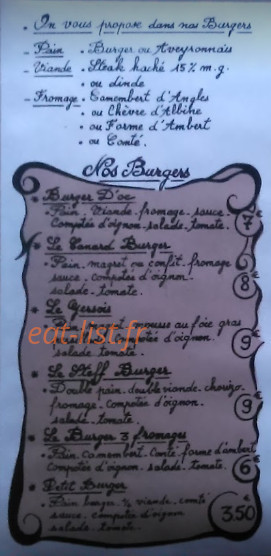 . On vous propose dans nos Burgers
- Pain . Burger ou Aveyronnais
- Viande . Steak haché 15% m.g.
. ou dinde
- Fromage . Camembert d'Angles
. ou Chèvre d'Albine
. ou Forme d'Ambert
. ou Comté.
Nos Burgers
. Burger D'oc
. Pain. Viande. fromage. sauce.
Compotée d'oignon. salade. tomate. 7€
. Le Canard Burger
. Pain. magret ou confit. fromage
sauce. compotée d'oignon. 8€
salade. tomate.
. Le Gersois
. Pain. au foie gras
eat-list.fr d'oignon. 9€
salade. tomate.
. Le Steff Burger
. Double pain. double viande. chorizo.
fromage. compotée d'oignon. 9€
salade. tomate.
. Le Burger 3 fromages
. Pain. camembert. Comté. forme d'ambert
Compotée d'oignon. salade. tomate. 6€
. Petit Burger
. Pain burger. ½ viande. comté
sauce. compotée d'oignon 3.50€
salade. tomate.